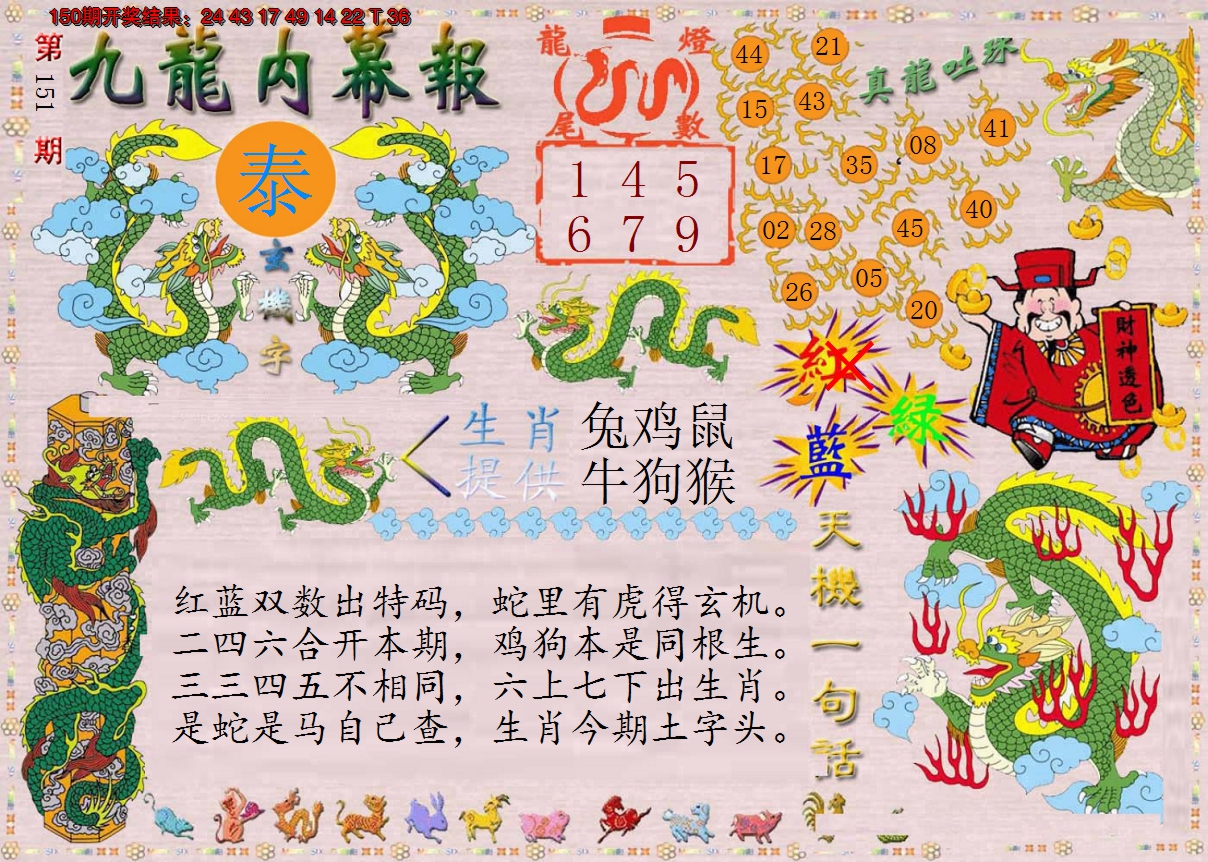 150期开奖结果：24 43 17 49 14 22 T 36
第151期
九龍内幕報
泰
玄機字
龍燈
尾數
1 4 5
6 7 9
真龍吐珠
44
21
15
43
17
35
08
41
02
28
45
40
26
05
20
財神透色
紅
綠
藍
生肖
提供
兔鸡鼠
牛狗猴
天機一句話
红蓝双数出特码，蛇里有虎得玄机。
二四六合开本期，鸡狗本是同根生。
三三四五不相同，六上七下出生肖。
是蛇是马自己查，生肖今期土字头。